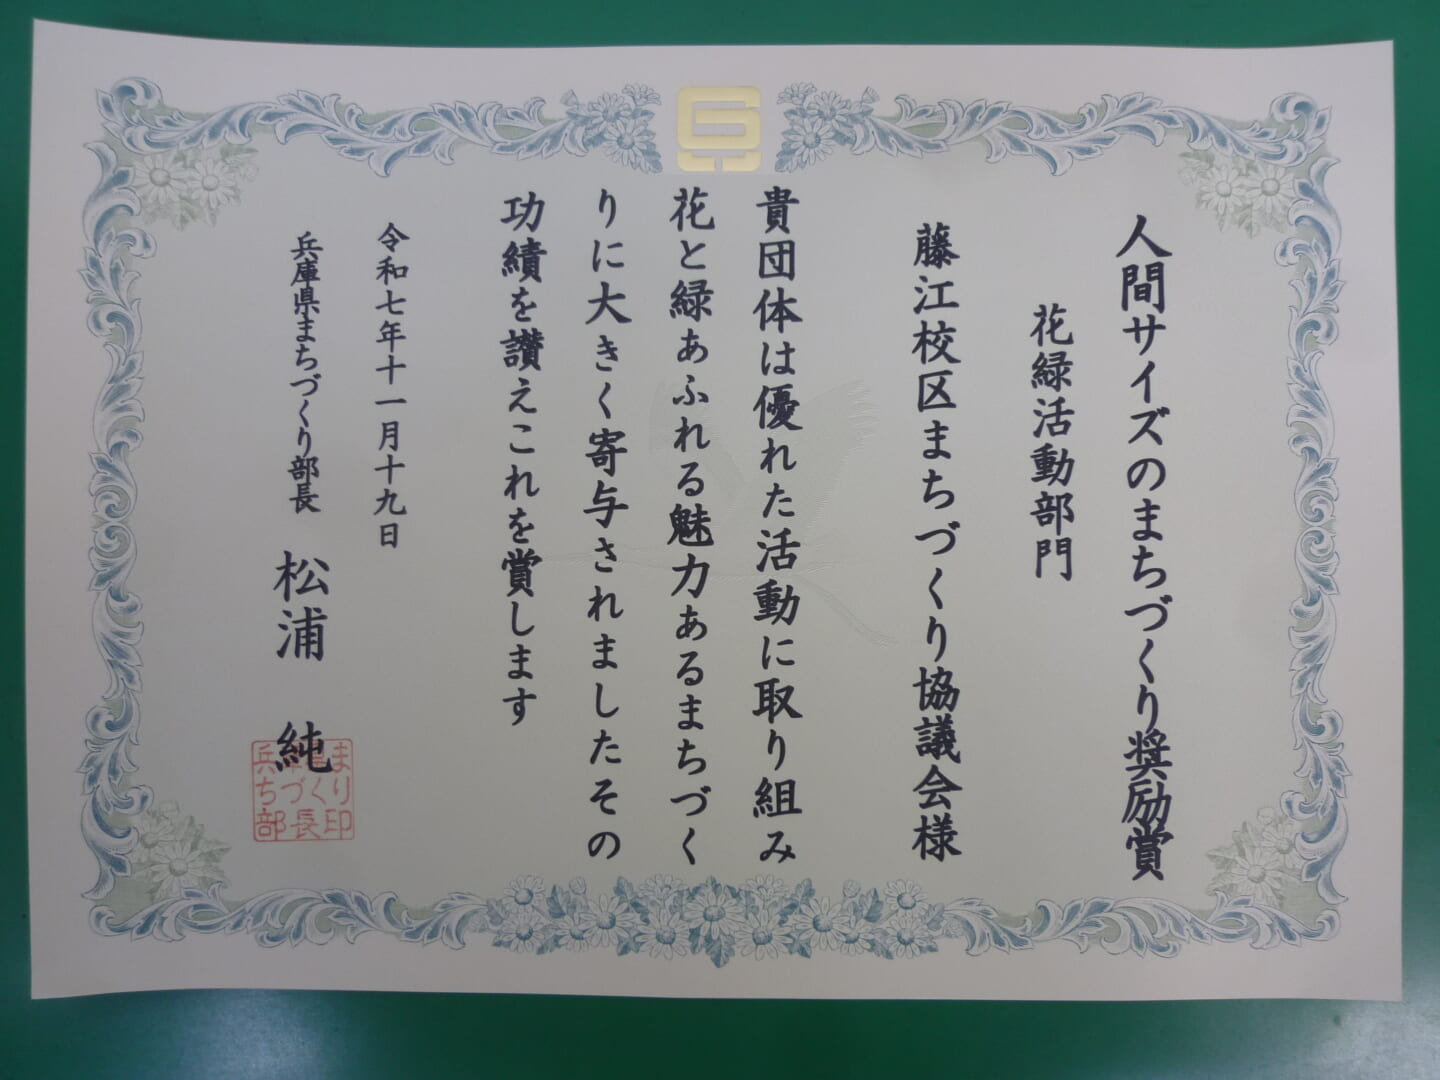 人間サイズのまちづくり奨励賞
花緑活動部門
藤江校区まちづくり協議会様
貴団体は優れた活動に取り組み
花と緑あふれる魅力あるまちづく
りに大きく寄与されましたその
功績を讃えこれを賞します
令和七年十一月十九日
兵庫県まちづくり部長 松浦 純
兵庫県まちづくり部長印